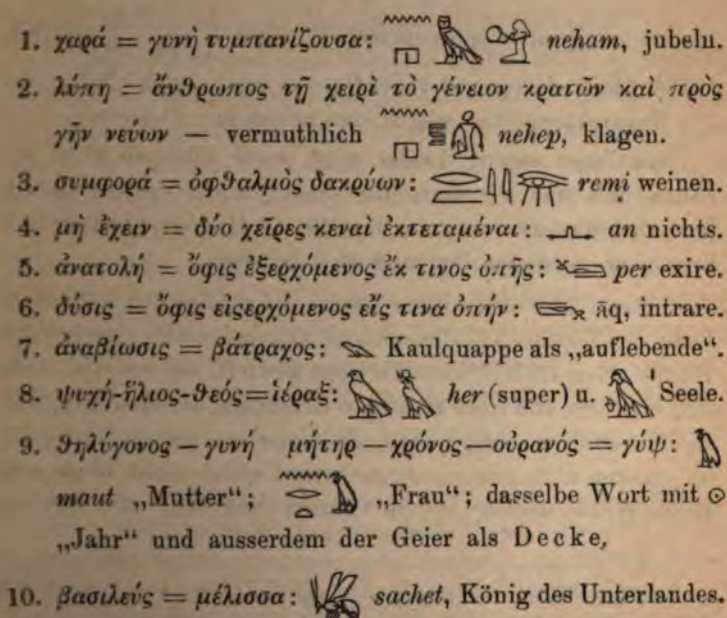 1. χαρά = γυνὴ τυμπανίζουσα: neham, jubeln.
2. λύπη = ἄνθρωπος τῇ χειρὶ τὸ γένειον κρατῶν καὶ πρὸς
γῆν νεύων — vermuthlich nehep, klagen.
3. συμφορά = ὀφθαλμὸς δακρύων: remi̩ weinen.
4. μὴ ἔχειν = δύο χεῖρες κεναὶ ἐκτεταμέναι: an nichts.
5. ἀνατολή = ὄφις ἐξερχόμενος ἔκ τινος ὀπῆς: per exire.
6. δύσις = ὄφις εἰςερχόμενος εἴς τινα ὀπήν: āq, intrare.
7. ἀναβίωσις = βάτραχος: Kaulquappe als „auflebende“.
8. ψυχή-ἥλιος-θεός=ἱέραξ: her (super) u. Seele.
9. θηλύγονος – γυνή μήτηρ – χρόνος—οὐρανός = γύψ:
maut „Mutter“; „Frau“; dasselbe Wort mit ☉
„Jahr“ und ausserdem der Geier als Decke,
10. βασιλεύς = μέλισσα: sachet, König des Unterlandes.